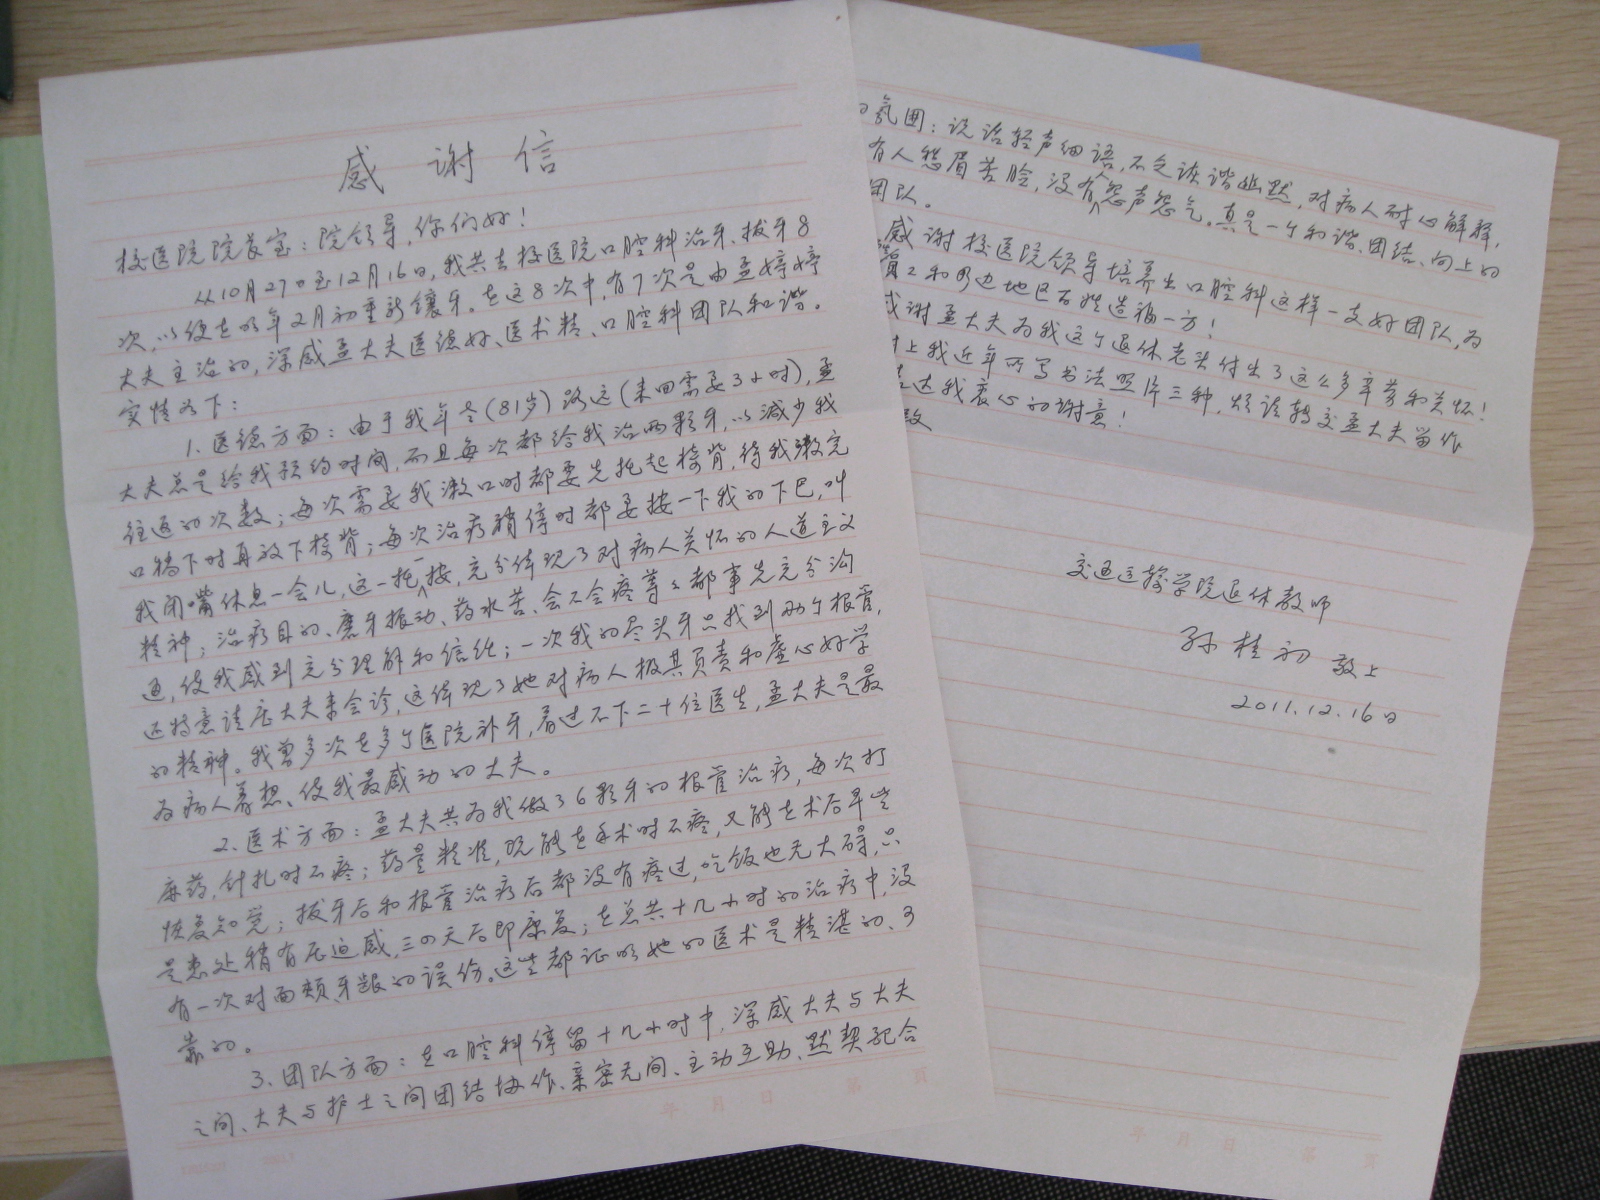 感谢信
校医院院长室：院领导，你们好！
从10月27日至12月16日，我共去校医院口腔科治牙、拔牙8
次，以便在明年2月初重新镶牙。在这8次中，有7次是由孟婷婷
大夫主治的，深感孟大夫医德好、医术精、口腔科团队和谐。
实情如下：
1.医德方面：由于我年冬(81岁)路远(来回需要3小时)，孟
大夫总是给我预约时间，而且每次都给我治两颗牙，以减少我
往返的次数；每次需要我漱口时都要先托起椅背，待我漱完
口躺下时再放下椅背；每次治疗稍停时都要按一下我的下巴，叫
我闭嘴休息一会儿，这一托一按，充分体现了对病人关怀的人道主义
精神；治疗目的、磨牙振动、药水苦、会不会疼等々都事先充分沟
通，使我感到充分理解和信任；一次我的尽头牙只找到两个根管，
还特意请庄大夫来会诊，这体现了她对病人极其负责和虚心好学
的精神。我曾多次在多个医院补牙，看过不下二十位医生，孟大夫是最
为病人着想、使我最感动的大夫。
2.医术方面：孟大夫共为我做了6颗牙的根管治疗，每次打
麻药，针扎时不疼；药量精准，既能在手术时不疼，又能在术后早些
恢复知觉；拔牙后和根管治疗后都没有疼过，吃饭也无大碍，只
是患处稍有压迫感，三四天后即康复；在总共十几小时的治疗中，没
有一次对面颊、牙龈的误伤。这些都证明她的医术是精湛的、可
靠的。
3.团队方面：在口腔科停留十几小时中，深感大夫与大夫
之间、大夫与护士之间团结协作、亲密无间、主动互助、默契配合
年 月 日 第 页
的氛围：说话轻声细语，不乏诙谐幽默，对病人耐心解释，
有人愁眉苦脸，没有怨声怨气。真是一个和谐、团结、向上的
团队。
感谢校医院领导培养出口腔科这样一支好团队，为
员工和周边地区百姓造福一方！
感谢孟大夫为我这个退休老头付出了这么多辛劳和关怀！
上我近年所写书法照片三种，烦请转交孟大夫留作
达我衷心的谢意！
致
交通运输学院退休教师
孙桂初 敬上
2011.12.16日
年 月 日 第 页